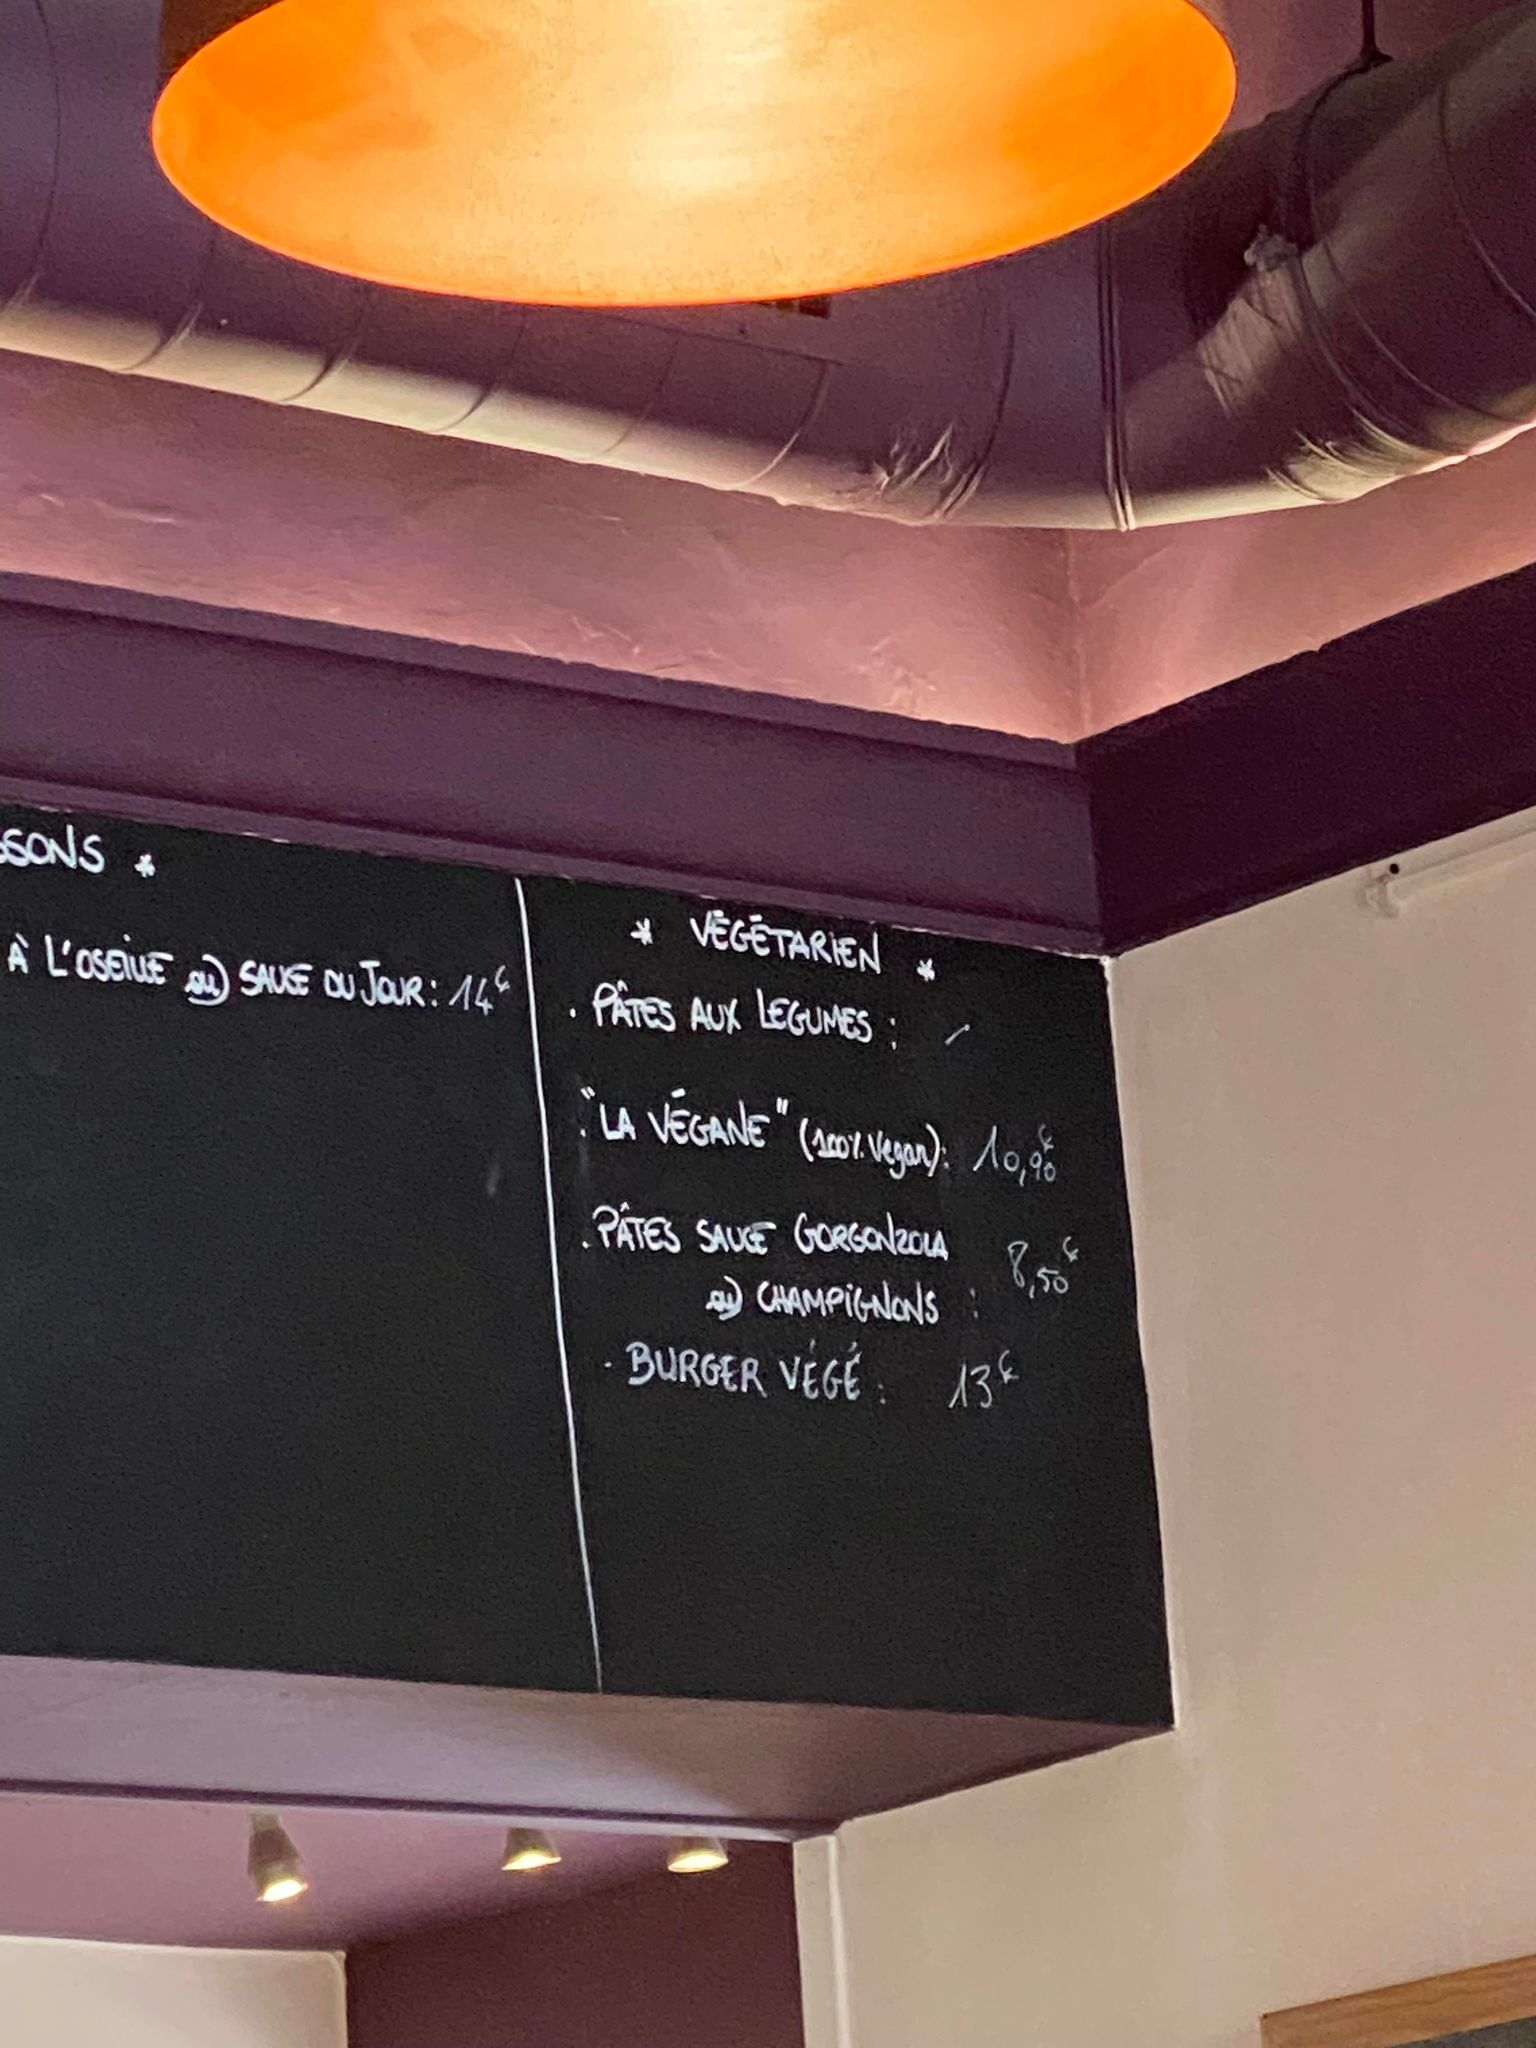 SSONS *
À L'OSEILLE ou SAUCE DU JOUR : 14€
* VÉGÉTARIEN *
. PÂTES AUX LEGUMES : -
. "LA VÉGANE" (100% Vegan) : 10,90€
. PÂTES SAUCE GORGONZOLA
ou CHAMPIGNONS : 8,50€
. BURGER VÉGÉ : 13€